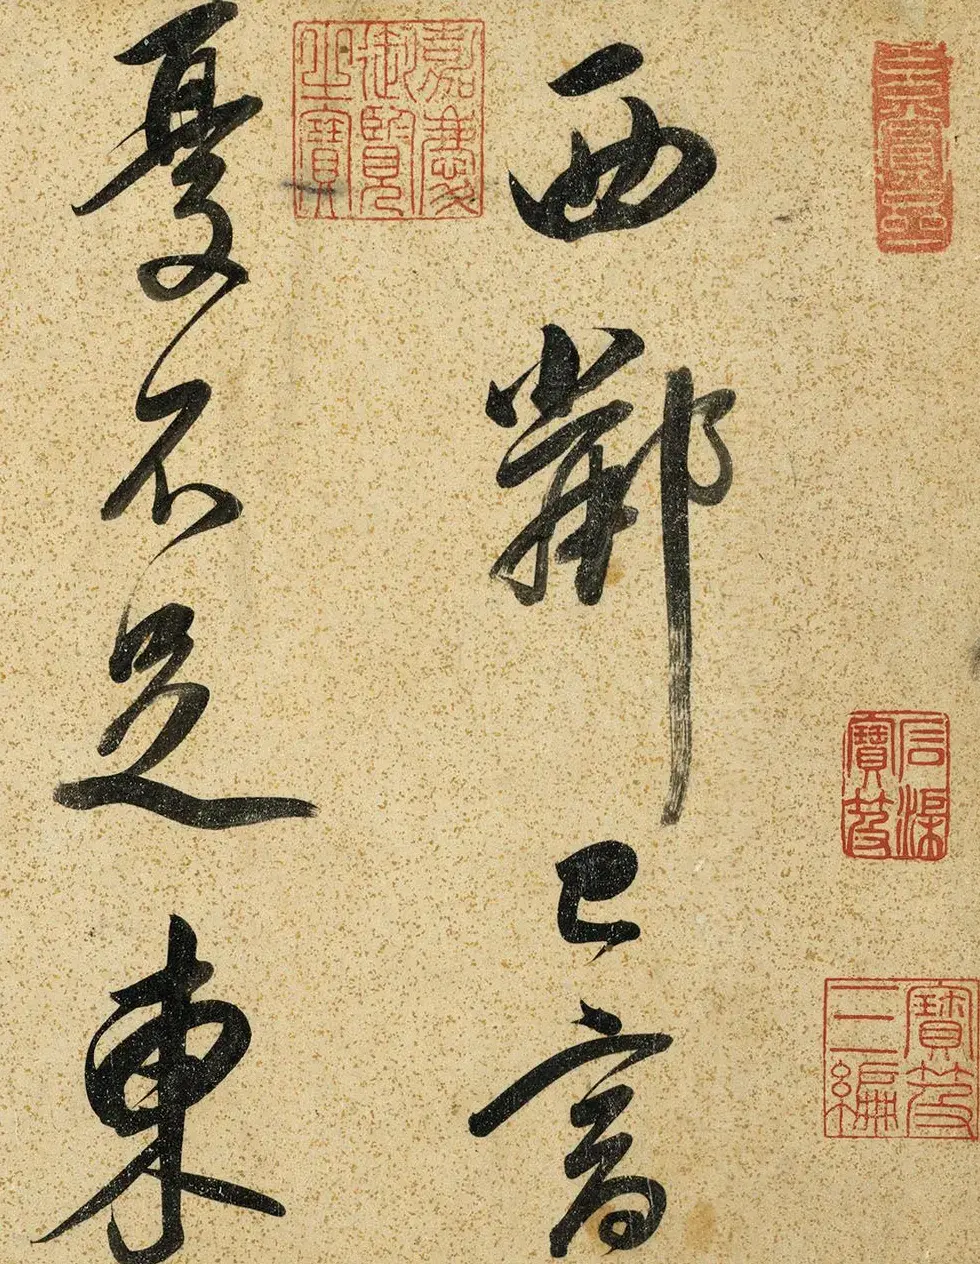 玄賞齋
石渠寶笈
寶笈三編
西鄰已富
嘉慶御覽之寶
憂不足東